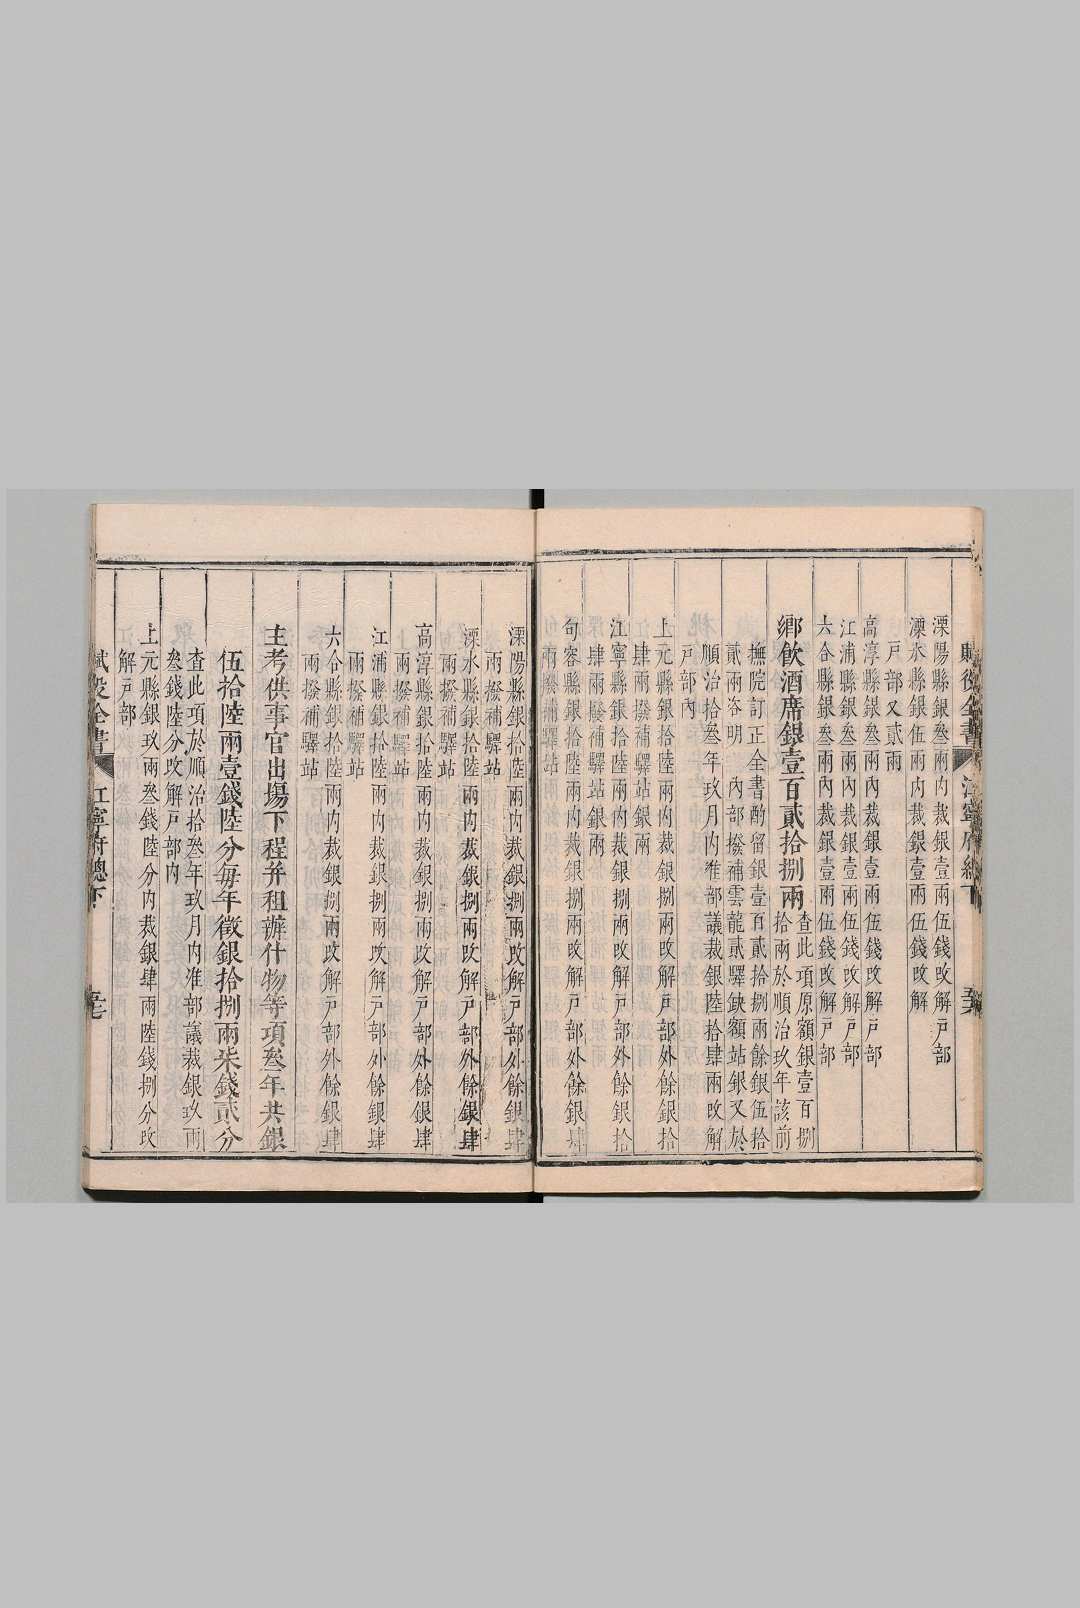 賦役全書 江寧府總下 五六
溧陽縣銀叁兩內裁銀壹兩伍錢改解戶部
溧水縣銀伍兩內裁銀壹兩伍錢改解
戶部又貳兩
高淳縣銀叁兩內裁銀壹兩伍錢改解戶部
江浦縣銀叁兩內裁銀壹兩伍錢改解戶部
六合縣銀叁兩內裁銀壹兩伍錢改解戶部
鄉飲酒席銀壹百貳拾捌兩
查此項原額銀壹百捌
拾兩於順治玖年該前
撫院訂正全書酌留銀壹百貳拾捌兩餘銀伍拾
貳兩咨明 內部撥補雲龍貳驛缺額站銀又於
順治拾叁年玖月內准部議裁銀陸拾肆兩改解
戶部內
上元縣銀拾陸兩內裁銀捌兩改解戶部外餘銀拾
肆兩撥補驛站銀兩
江寧縣銀拾陸兩內裁銀捌兩改解戶部外餘銀拾
肆兩撥補驛站銀兩
句容縣銀拾陸兩內裁銀捌兩改解戶部外餘銀肆
兩撥補驛站
溧陽縣銀拾陸兩內裁銀捌兩改解戶部外餘銀肆
兩撥補驛站
溧水縣銀拾陸兩內裁銀捌兩改解戶部外餘銀肆
兩撥補驛站
高淳縣銀拾陸兩內裁銀捌兩改解戶部外餘銀肆
兩撥補驛站
江浦縣銀拾陸兩內裁銀捌兩改解戶部外餘銀肆
兩撥補驛站
六合縣銀拾陸兩內裁銀捌兩改解戶部外餘銀肆
兩撥補驛站
主考供事官出場下程并租辦什物等項叁年共銀
伍拾陸兩壹錢陸分每年徵銀拾捌兩柒錢貳分
查此項於順治拾叁年玖月內准部議裁銀玖兩
叁錢陸分改解戶部內
上元縣銀玖兩叁錢陸分內裁銀肆兩陸錢捌分改
解戶部
賦役全書 江寧府總下 五七